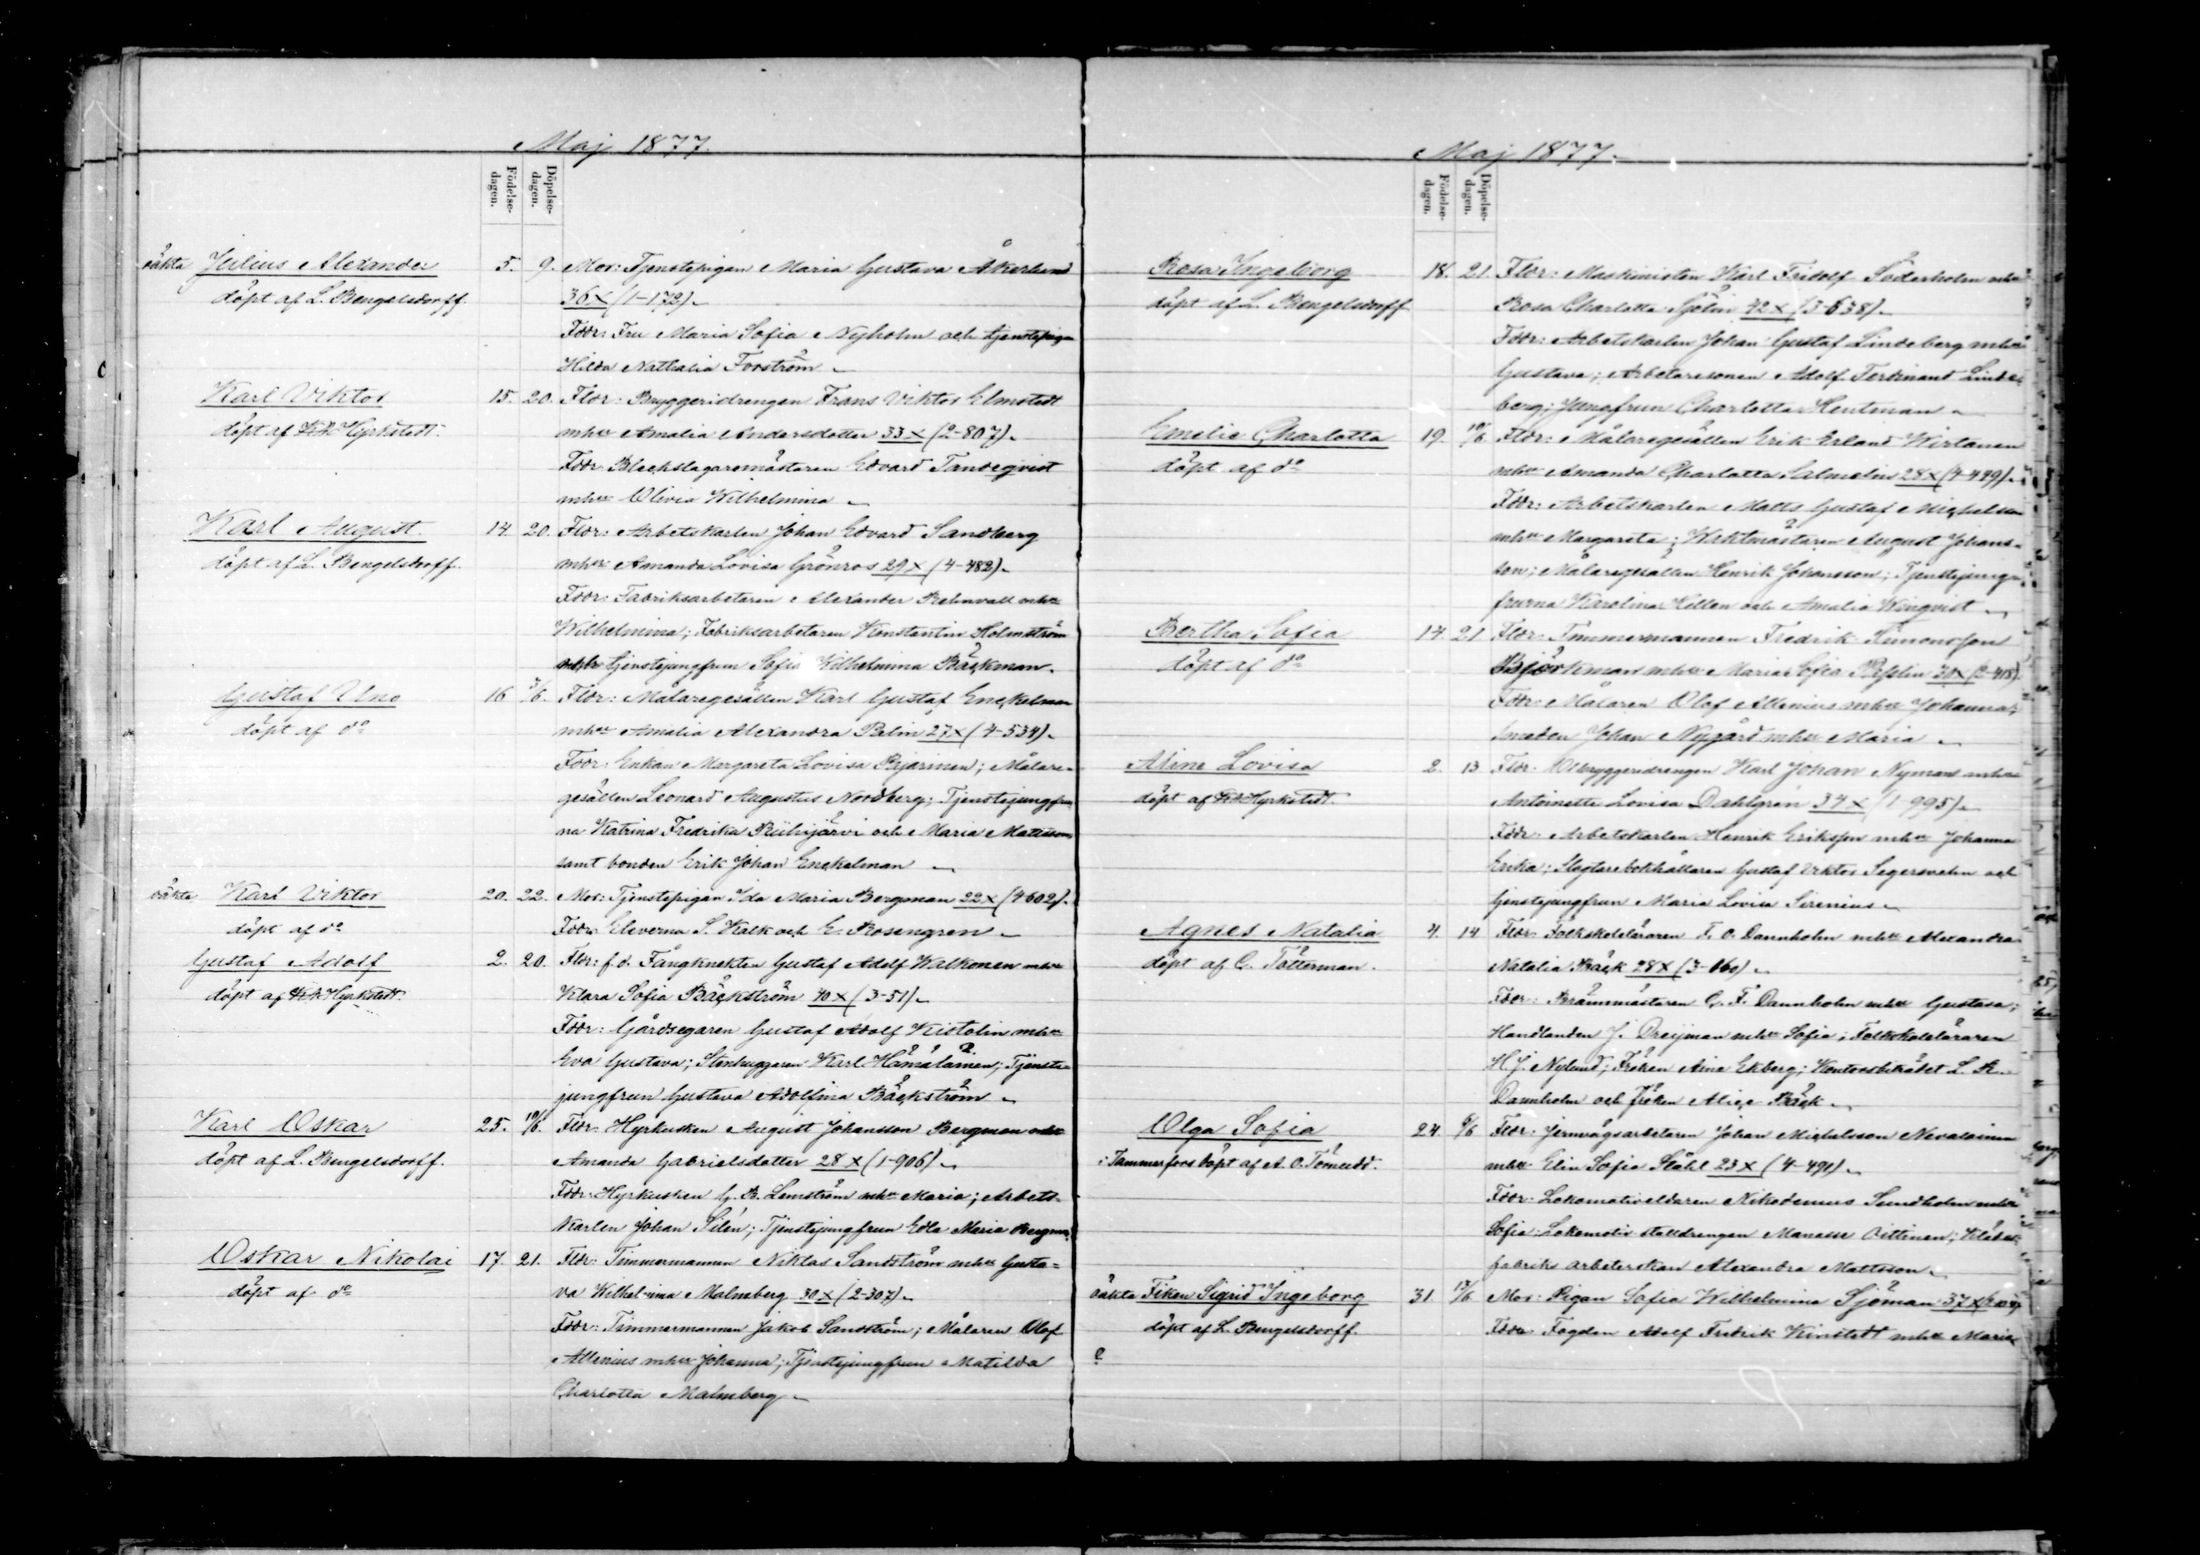 Maj 1877.
Födelse-dagen.
Döpelse-dagen.
oäkta Julius Alexander 5. 9. Mor: Tjenstepigan Maria Gustava Åkerlund
döpt af L. Bengelsdorff. 36 x (1-172).
Fddr: Fru Maria Sofia Nyholm och tjenstepig
Hilda Nathalia Forström
Karl Viktor 15. 20. Fldr: Bryggeridrengen Frans Viktor Elmstedt
döpt af Hyrkstedt. mhu Amalia Andersdotter 33 x (2-807).
Fddr: Bleckslagaremästaren Edvard Tandeqvist
mhu Olivia Wilhelmina
Karl August 14. 20. Fldr: Arbetskarlen Johan Edvard Sandberg
döpt af L. Bengelsdorff. mhu Amanda Lovisa Grönros 29 x (4-482).
Fddr: Fabriksarbetaren Alexander Rehnvall mhu
Wilhelmina; Fabriksarbetaren Konstantin Holmström
tjenstejungfrun Sofia Wilhelmina Bäckman.
Gustaf Uno 16 3/6. Fldr: Målaregesällen Karl Gustaf Enckelman
döpt af do mhu Amalia Alexandra Palin 27 x (4-534).
Fddr: Enkan Margareta Lovisa Bjarmen; Målare-
gesällen Leonard Augustus Nordberg; Tjenstejungfru
na Katrina Fredrika Riihijärvi och Maria Mattsson
samt bonden Erik Johan Enckelman
oäkta Karl Viktor 20. 22. Mor: Tjenstepigan Ida Maria Bergman 22 x (4-602).
döpt af do Fddr: Eleverna S. Kalk och E. Rosengren.
Gustaf Adolf 2. 20. Fldr: f.d. Fångknekten Gustaf Adolf Walkonen mhu
döpt af Hyrkstedt. Klara Sofia Bäckström 40 x (3-51).
Fddr: Gårdsegaren Gustaf Adolf Kistolin mhu
Eva Gustava; Stenhuggaren Karl Hämäläinen; Tjenste
jungfrun Gustava Adolfina Bäckström
Karl Oskar 25. 10/6. Fldr: Hyrkusken August Johansson Bergman mhu
döpt af L. Bengelsdorff. Amanda Gabrielsdotter 28 x (1-906).
Fddr: Hyrkusken G. R. Lemström mhu Maria; Arbets-
karlen Johan Silén; Tjenstejungfrun Edla Maria Bergma
Oskar Nikolai 17. 21. Fldr: Timmermannen Niklas Sandström mhu Gusta-
döpt af do va Wilhelmina Malmberg 30 x (2-307).
Fddr: Timmermannen Jakob Sandström; Målaren Olof
Allenius mhu Johanna; Tjenstejungfrun Matilda
Charlotta Malmberg
Maj 1877.
Födelse-dagen.
Döpelse-dagen.
Rosa Ingeborg 18. 21. Fldr: Maskinisten Karl Fridolf Söderholm mhu
döpt af L. Bengelsdorff Rosa Charlotta Sjölin 42 x (3-638).
Fddr: Arbetskarlen Johan Gustaf Lindeberg mhu
Gustava; Arbetaresonen Adolf Ferdinand Linde
berg; Jungfrun Charlotta Hentman
Emelie Charlotta 19. 10/6 Fldr: Målaregesällen Erik Erland Wirtanen
döpt af do mhu Amanda Charlotta Salmelin 28 x (4-449).
Fddr: Arbetskarlen Matts Gustaf Michelsson
mhu Margareta; Waktmästaren August Johans-
son; Målaregesällen Henrik Johansson; Tjenstejung-
frurna Karolina Hellen och Amalia Winqvist
Bertha Sofia 14. 21 Fldr: Timmermannen Fredrik Simonsson
döpt af do Björkman mhu Maria Sofia 30 x (2-418).
Fddr: Målaren Olof Allenius mhu Johanna;
smeden Johan Nygård mhu Maria
Aline Lovisa 2. 13 Fldr: Ölbryggeridrengen Karl Johan Nyman mhu
döpt af Hyrkstedt. Antoinetta Lovisa Dahlgren 34 x (1-995).
Fddr: Arbetskarlen Henrik Eriksson mhu Johanna
Erika; Slagtarebokhållaren Gustaf Viktor Segersvehn och
tjenstejungfrun Maria Lovisa Sirenius
Agnes Natalia 4. 14 Fldr: Folkskoleläraren F. O. Dannholm mhu Alexandra
döpt af C. Tötterman. Natalia Bäck 28 x (3-160).
Fddr: Brännmästaren C. F. Dannholm mhu Gustava;
Handlanden J. Dreijman mhu Sofia; Folkskoleläraren
H. J. Nylund; Fröken Aina Ekberg; Kontorsbiträdet L. R.
Dannholm och fröken Alice Bäck
Olga Sofia 24. 8/6 Fldr: Jernvägsarbetaren Johan Michelsson Nevalainen
i Tammerfors döpt af A. O. Törnudd. mhu Elin Sofia Ståhl 23 x (4-491).
Fddr: Lokomotiveldaren Nikodemus Sundholm mhu
Sofia; Lokomotiv stalldrengen Manasse Oittinen; Klädes
fabriks arbeterskan Alexandra Mattsson
oäkta Fiken Sigrid Ingeborg 31. 17/6 Mor: Pigan Sofia Wilhelmina Sjöman 37 x
döpt af L. Bengelsdorff. Fddr: Fogden Adolf Fredrik Winstedt mhu Maria
?